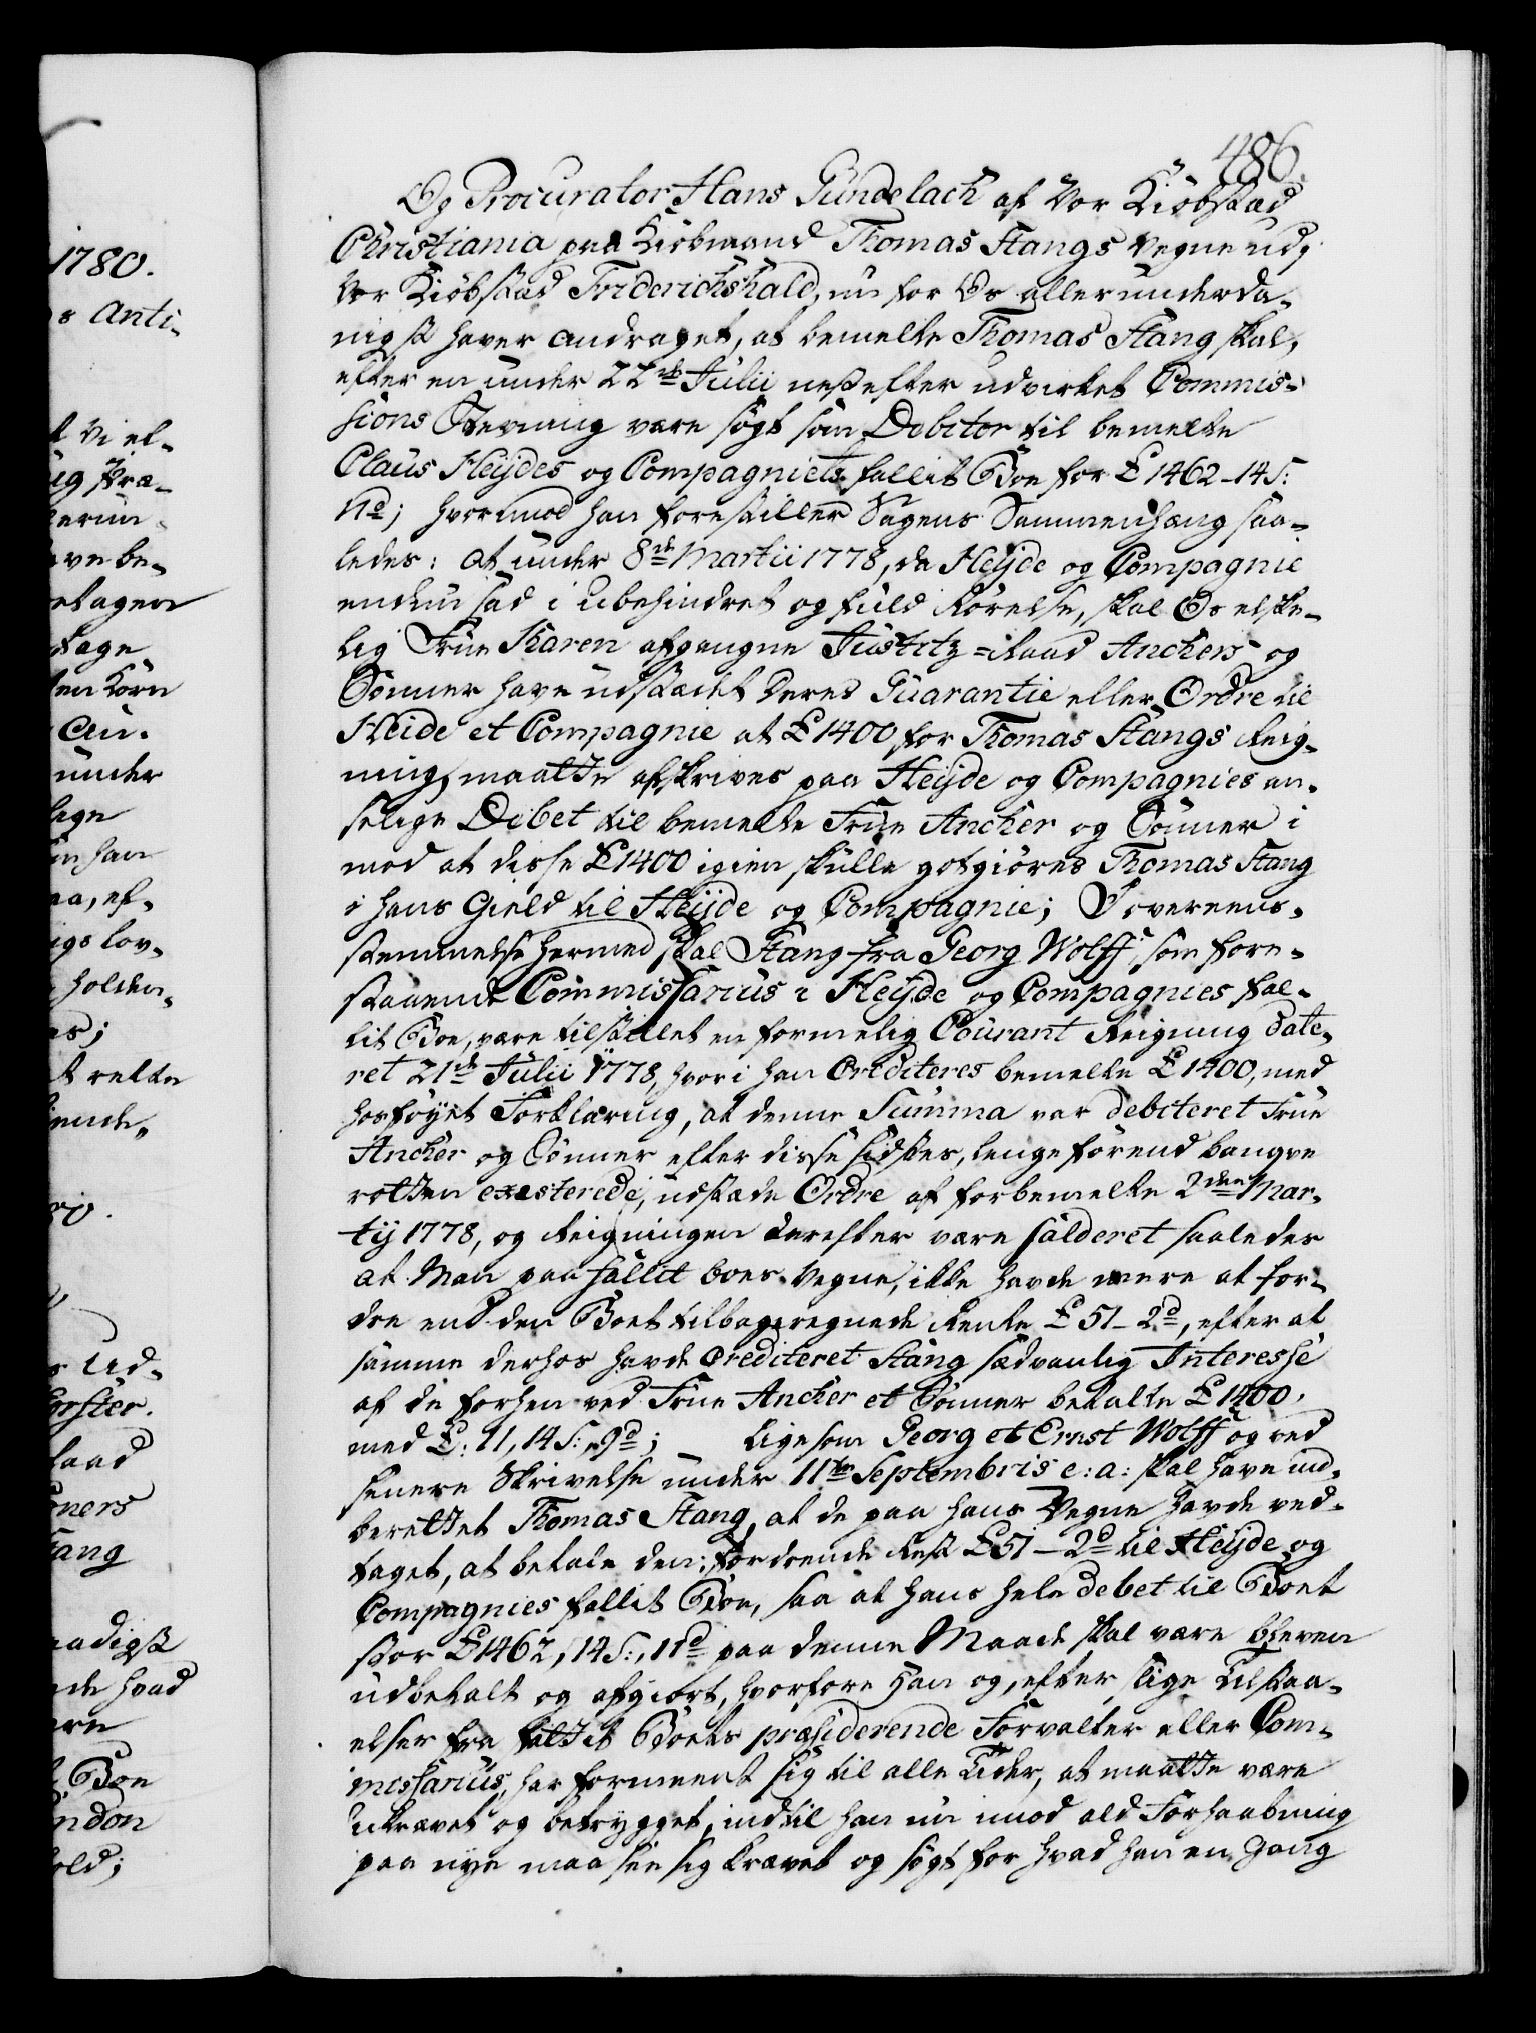 486.
Og Procurator Hans Gundelach af Vor Kiøbstad
Christiania paa Kiøbmand Thomas Stangs Vegne udj
Vor Kiøbstad Friderichshald, nu for Os allerunderda-
nigst haver andraget, at bemelte Thomas Stang skal,
efter en under 22de Julii nestefter udvirket Commis-
sions Stevning være søgt som Debitor til bemelte
Claus Heijdes og Compagniets fallit Boe for £ 1462-14 S:
11d; hvorimod han forestiller Sagens Sammenhæng saa-
ledes: at under 8de Martii 1778, da Heijde og Compagnie
endnu sad i ubehindret og fuld Rørelse, skal Os elske-
lig Frue Karen afgangne Justitz-Raad Anchers og
Sønner have udstædt deres Guarantie eller Ordre til
Heide et Compagnie at £ 1400 for Thomas Stangs Reig-
ning, maatte afskrives paa Heijde og Compagnies an-
selige Debet til bemelte Frue Ancher og Sønner i
mod at disse £ 1400 igien skulle gotgiøres Thomas Stang
i hans Gield til Heijde og Compagnie; I overeens-
stemmelse hermed skal Stang fra Georg Wolff, som fore-
staaende Commissarius i Heijde og Compagnies fal-
lit Boe, være tilstillet en formelig Courant Reigning date-
ret 21de Julii 1778, hvori han Crediteres bemelte £ 1400, med
hosføyet Forklaring, at denne Summa var debiteret Frue
Ancher og Sønner efter disse sidstes, lenge førend banqve
rotten existerede, udstæde Ordre af forbemelte 2den Mar-
tij 1778, og Reigningen derefter være salderet saaledes
at Man paa fallit boes Vegne, ikke havde mere at for-
dre end den Boet tilbageregnede Rente £ 51-2d, efter at
samme derhos havde Crediteret Stang sædvanlig Interesse
af de forhen ved Frue Ancher et Sønner betalte £ 1400,
med £: 11, 14 S: 9d; _ ligesom Georg et Ernst Wolff og ved
senere Skrivelse under 11te Septembris e: a: skal have ind-
berettet Thomas Stang, at de paa hans Vegne havde ved-
taget, at betale den fordrende Rest £ 51-2d til Heijde og
Compagnies fallit Boe, saa at hans hele debet til Boet
stor £ 1462, 14 S:, 11d paa denne Maade skal være bleven
udbetalt og afgiort, hvorfore han og, efter slige Tilstaa-
elser fra fallit Boets præsiderende Forvalter eller Com-
missarius, har formeent sig til alle Tider, at maatte være
ukrævet og betrygget, indtil han nu imod ald Forhaabning
paa nye maa see sig krævet og søgt for hvad han en Gang
1780.
Anti-
Vi el-
ig Præ-
ve be-
tagen
tage
ten Kørn
under
han
lov-
holden-
rette
Ud-
Raad
nners
tang
naadigst
hvad
Boe
ondon